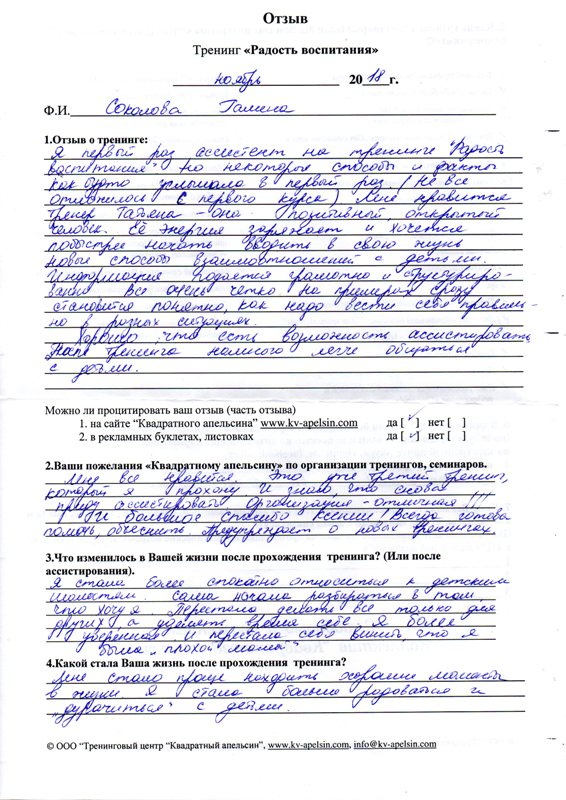 Отзыв
Тренинг «Радость воспитания»
ноябрь 2018 г.
Ф.И. Соколова Галина
1.Отзыв о тренинге:
Я первый раз ассистент на тренинге "Радость
воспитания" но некоторые способы и факты
как будто услышала в первый раз (Не все
отложилось с первого курса) Мне нравится
тренер Татьяна - Она позитивный открытый
человек. Её энергия заряжает и хочется
побыстрее начать вводить в свою жизнь
новые способы взаимоотношений с детьми.
Информация подается грамотно и структуриро-
ванно Все очень четко на примерах сразу
становится понятно, как надо вести себя правиль-
но в разных ситуациях.
Хорошо, что есть возможность ассистировать
После тренинга намного легче общаться
с детьми.
Можно ли процитировать ваш отзыв (часть отзыва)
1. на сайте "Квадратного апельсина" www.kv-apelsin.com да [✓] нет [ ]
2. в рекламных буклетах, листовках да [✓] нет [ ]
2.Ваши пожелания «Квадратному апельсину» по организации тренингов, семинаров.
Мне все нравится. Это уже третий тренинг,
который я прохожу И знаю, что снова
приду ассистировать Организация - отличная!!!
И большое спасибо Ксении! Всегда готова
помочь, объяснить. Предупреждает о новых тренингах.
3.Что изменилось в Вашей жизни после прохождения тренинга? (Или после
ассистирования).
Я стала более спокойно относиться к детским
шалостям. Сама начала разбираться в том,
что хочу я Перестала делать все только для
других а уделять время себе. Я более
уверенная и перестала себя винить что я
была "плохой мамой"
4.Какой стала Ваша жизнь после прохождения тренинга?
Мне стало проще находить хорошие моменты
в жизни. Я стала больше радоваться и
"дурачиться" с детьми.
© ООО "Тренинговый центр "Квадратный апельсин", www.kv-apelsin.com, info@kv-apelsin.com